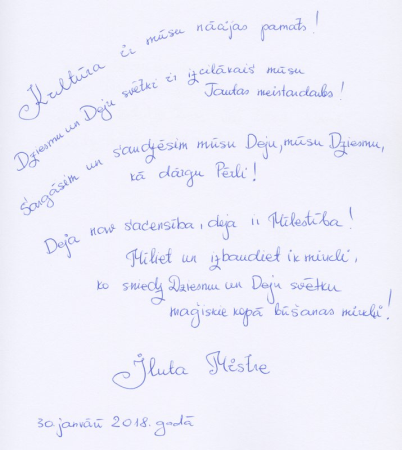 Kultūra ir mūsu nācijas pamats!
Dziesmu un Deju svētki ir izcilākais mūsu
Tautas meistardarbs!
Sargāsim un saudzēsim mūsu Deju, mūsu Dziesmu,
kā dārgu Pērli!
Deja nav sacensība, deja ir Mīlestība!
Mīliet un izbaudiet ik mirkli,
ko sniedz Dziesmu un Deju svētku
maģiskie kopā būšanas mirkļi!
Iluta Mistre
30. janvārī 2018. gadā